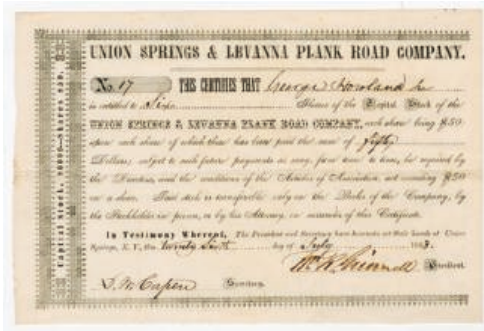 UNION SPRINGS & LEVANNA PLANK ROAD COMPANY.
No. 17 THIS CERTIFIES THAT George Howland Jr
is entitled to Shares of the Capital Stock of the
UNION SPRINGS & LEVANNA PLANK ROAD COMPANY, each share being $50
upon each share of which there has been paid the sum of fifty
Dollars, subject to such future payments as may, from time to time, be required by
the Directors, and the conditions of the Articles of Association, not exceeding $50
on a share. This stock is transferable only on the Books of the Company, by
the Stockholder in person, or by his Attorney, on surrender of this Certificate.
In Testimony Whereof, The President and Secretary have hereunto set their hands at Union
Springs, N. Y., this twenty sixth day of July
President.
Secretary.
Capital Stock,